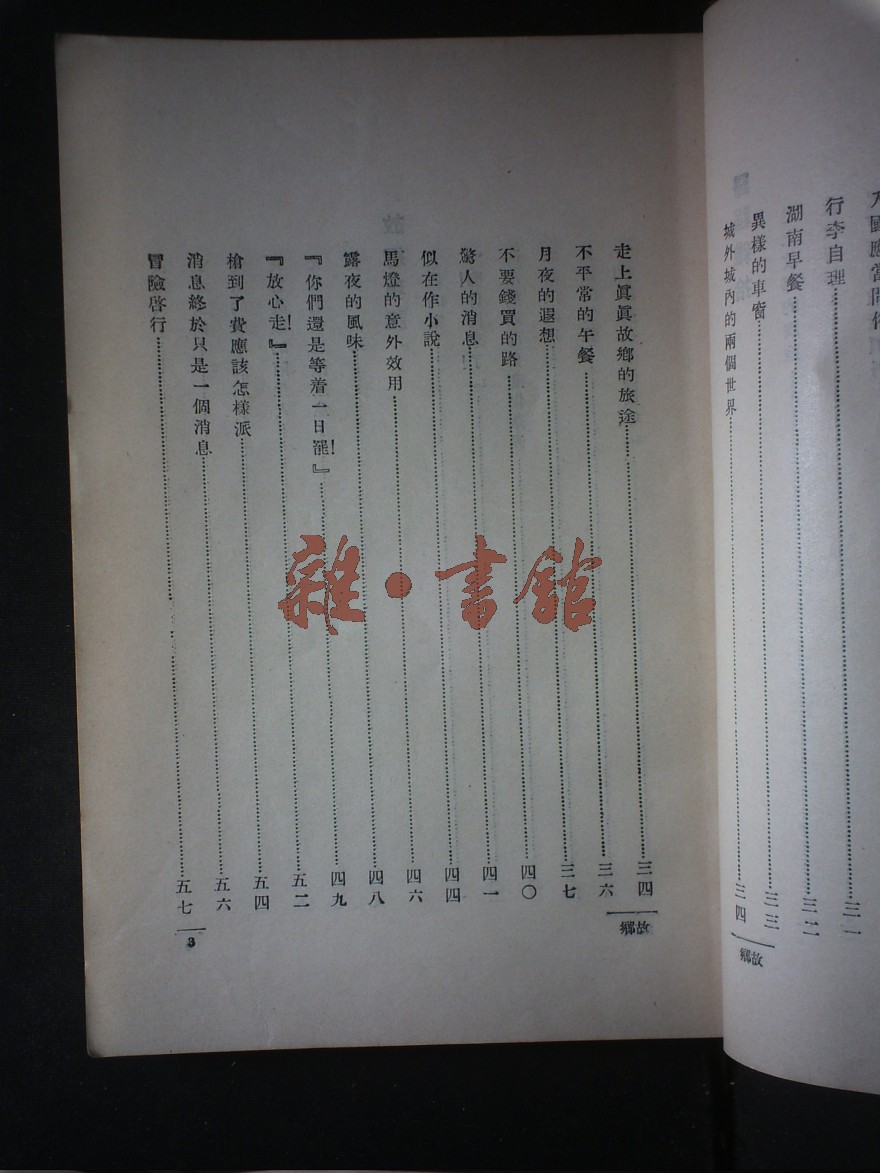 國應當
行李自理……三一
湖南早餐……三二
異樣的車窗……三三
城外城內的兩個世界……三四
故鄉
走上眞眞故鄉的旅途……三四
不平常的午餐……三六
月夜的遐想……三七
不要錢買的路……四〇
驚人的消息……四一
似在作小說……四四
馬燈的意外效用……四六
露夜的風味……四八
『你們還是等着一日罷！』……四九
『放心走！』……五二
槍到了費應該怎樣派……五四
消息終於只是一個消息……五六
冒險啓行……五七
故鄉
3
雜·書館